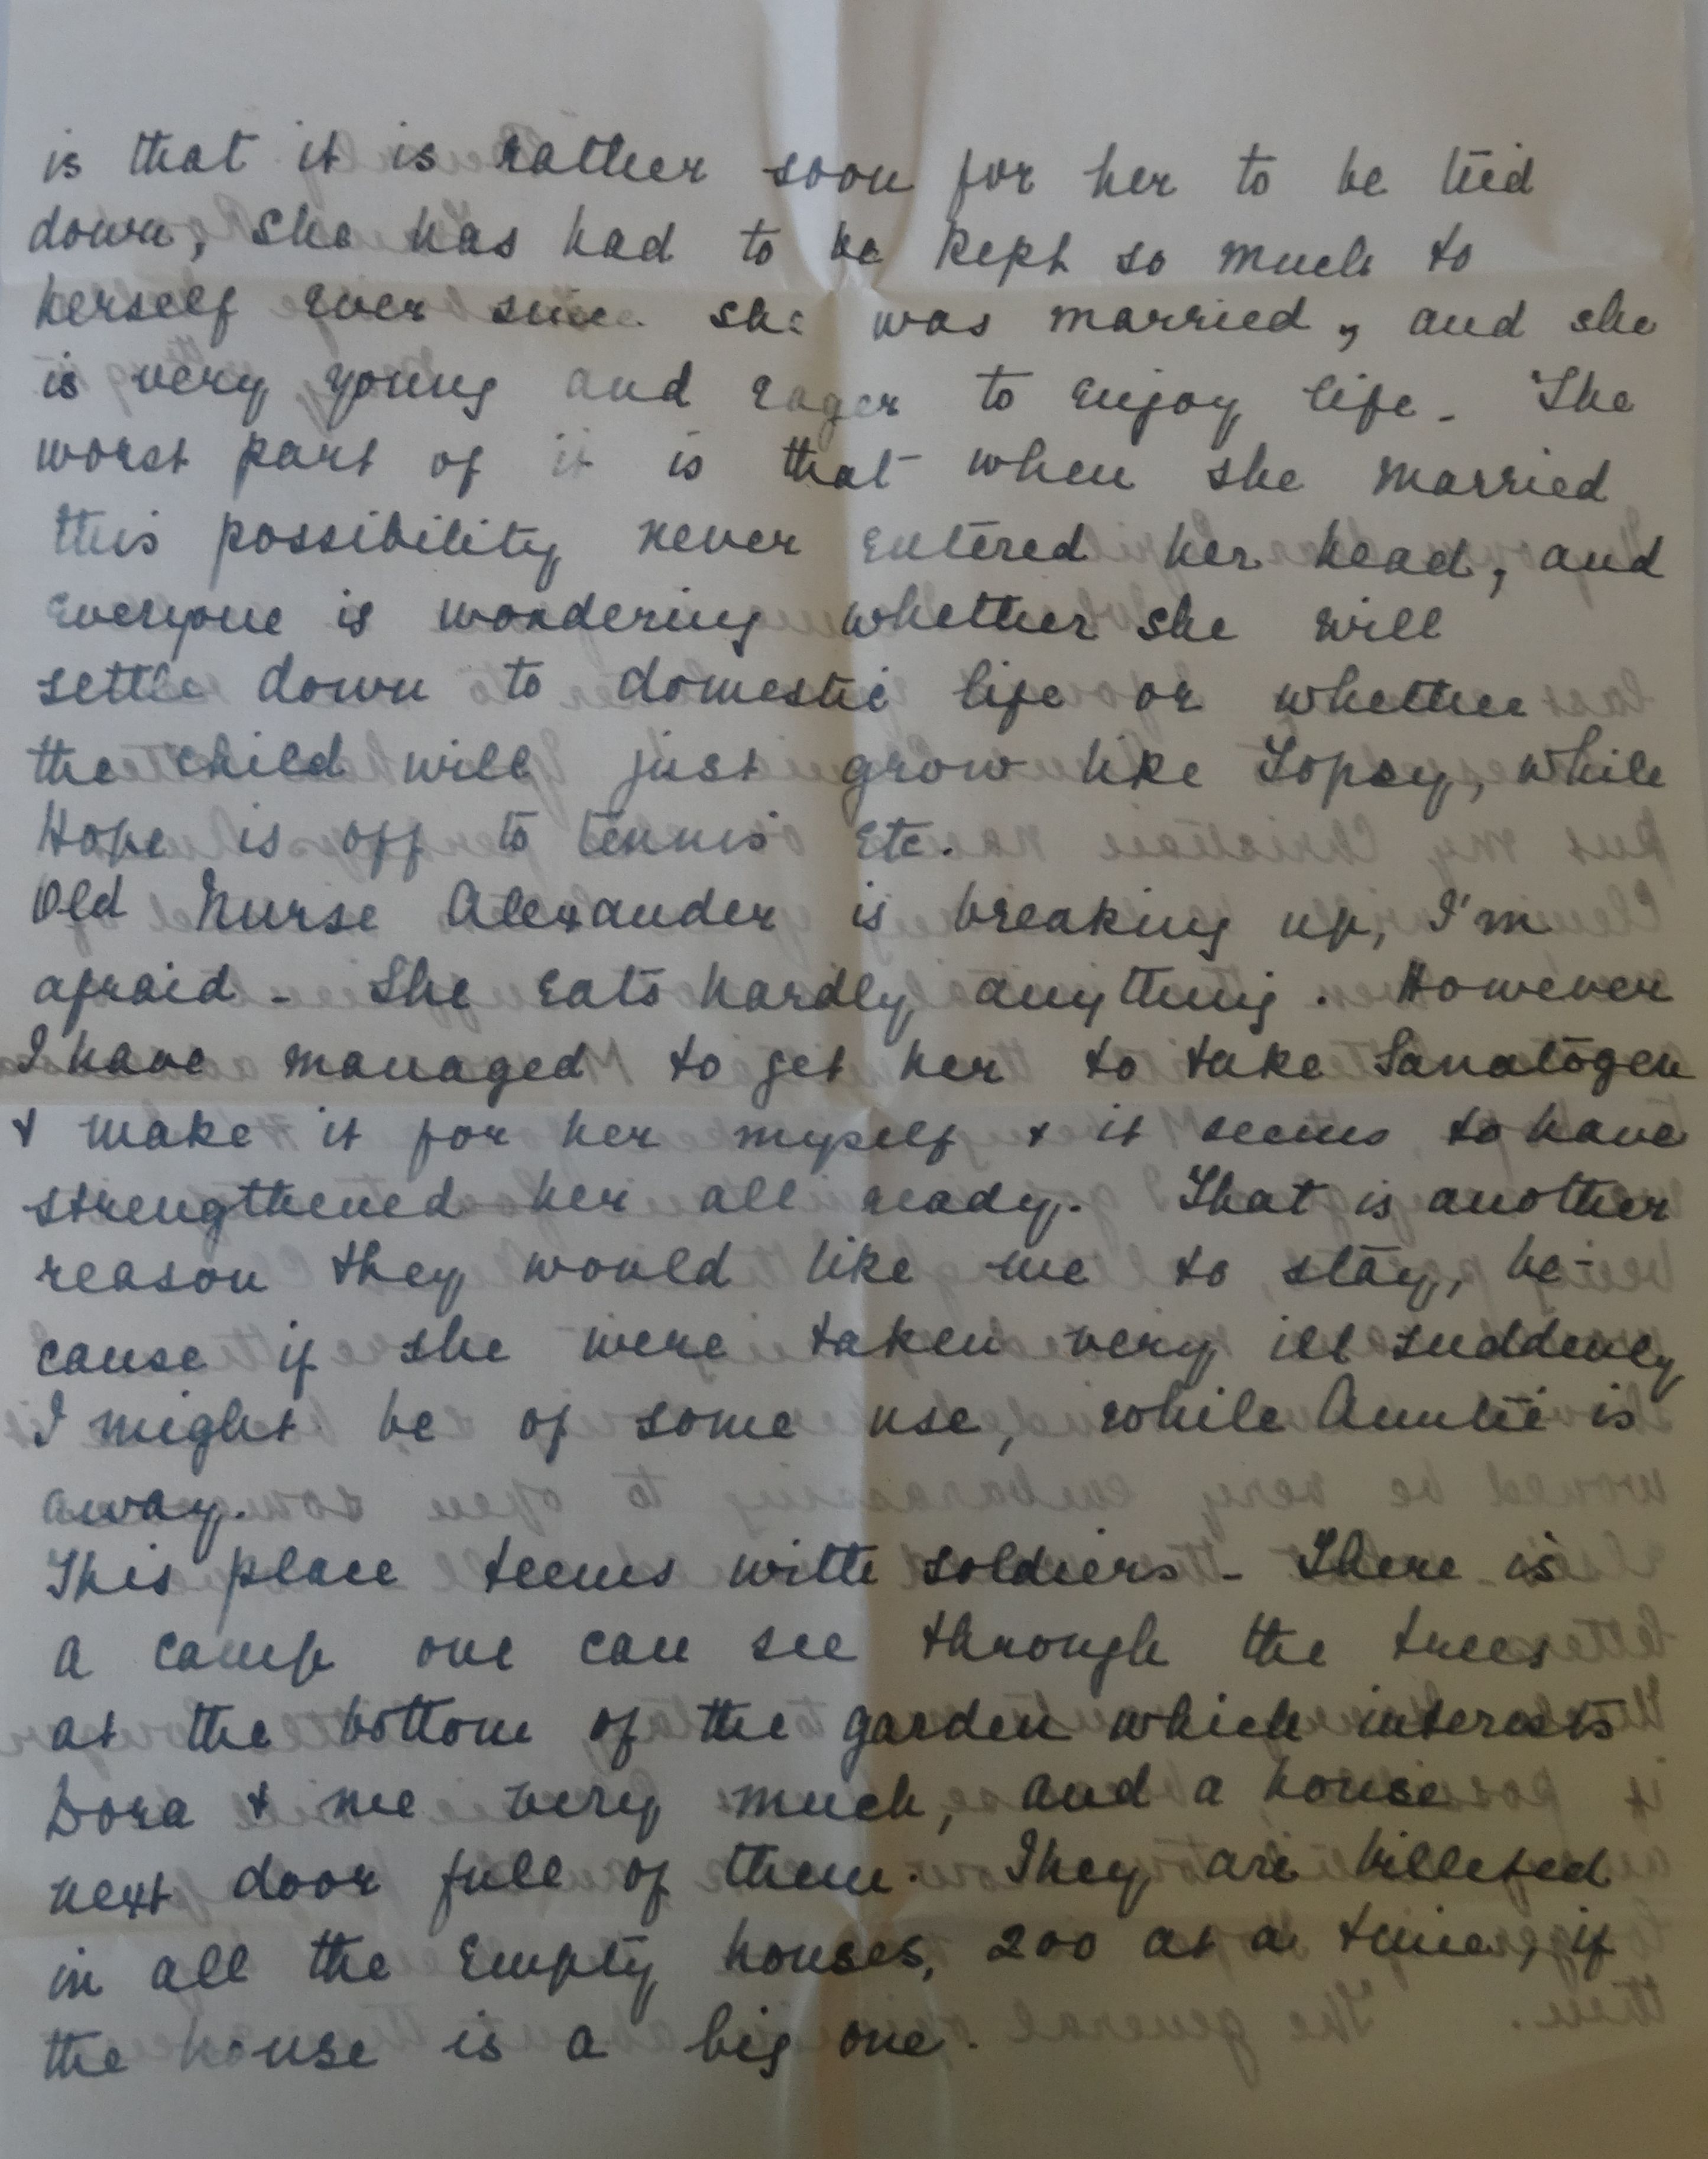 is that it is rather soon for her to be tied
down, she has had to be kept so much to
herself ever since she was married, and she
is very young and eager to enjoy life. The
worst part of it is that when she married
this possibility never entered her head, and
everyone is wondering whether she will
settle down to domestic life or whether
the child will just grow like Topsy, while
Hope is off to tennis etc.
Old Nurse Alexander is breaking up, I'm
afraid - She eats hardly anything. However
I have managed to get her to take Sanatogen
& make it for her myself & it seems to have
strengthened her all ready. That is another
reason they would like me to stay, be-
cause if she were taken very ill suddenly
I might be of some use, while Auntie is
away.
This place teems with soldiers - There is
a camp one can see through the trees
at the bottom of the garden which interests
Dora & me very much, and a house
next door full of them. They are billeted
in all the empty houses, 200 at a time, if
the house is a big one.